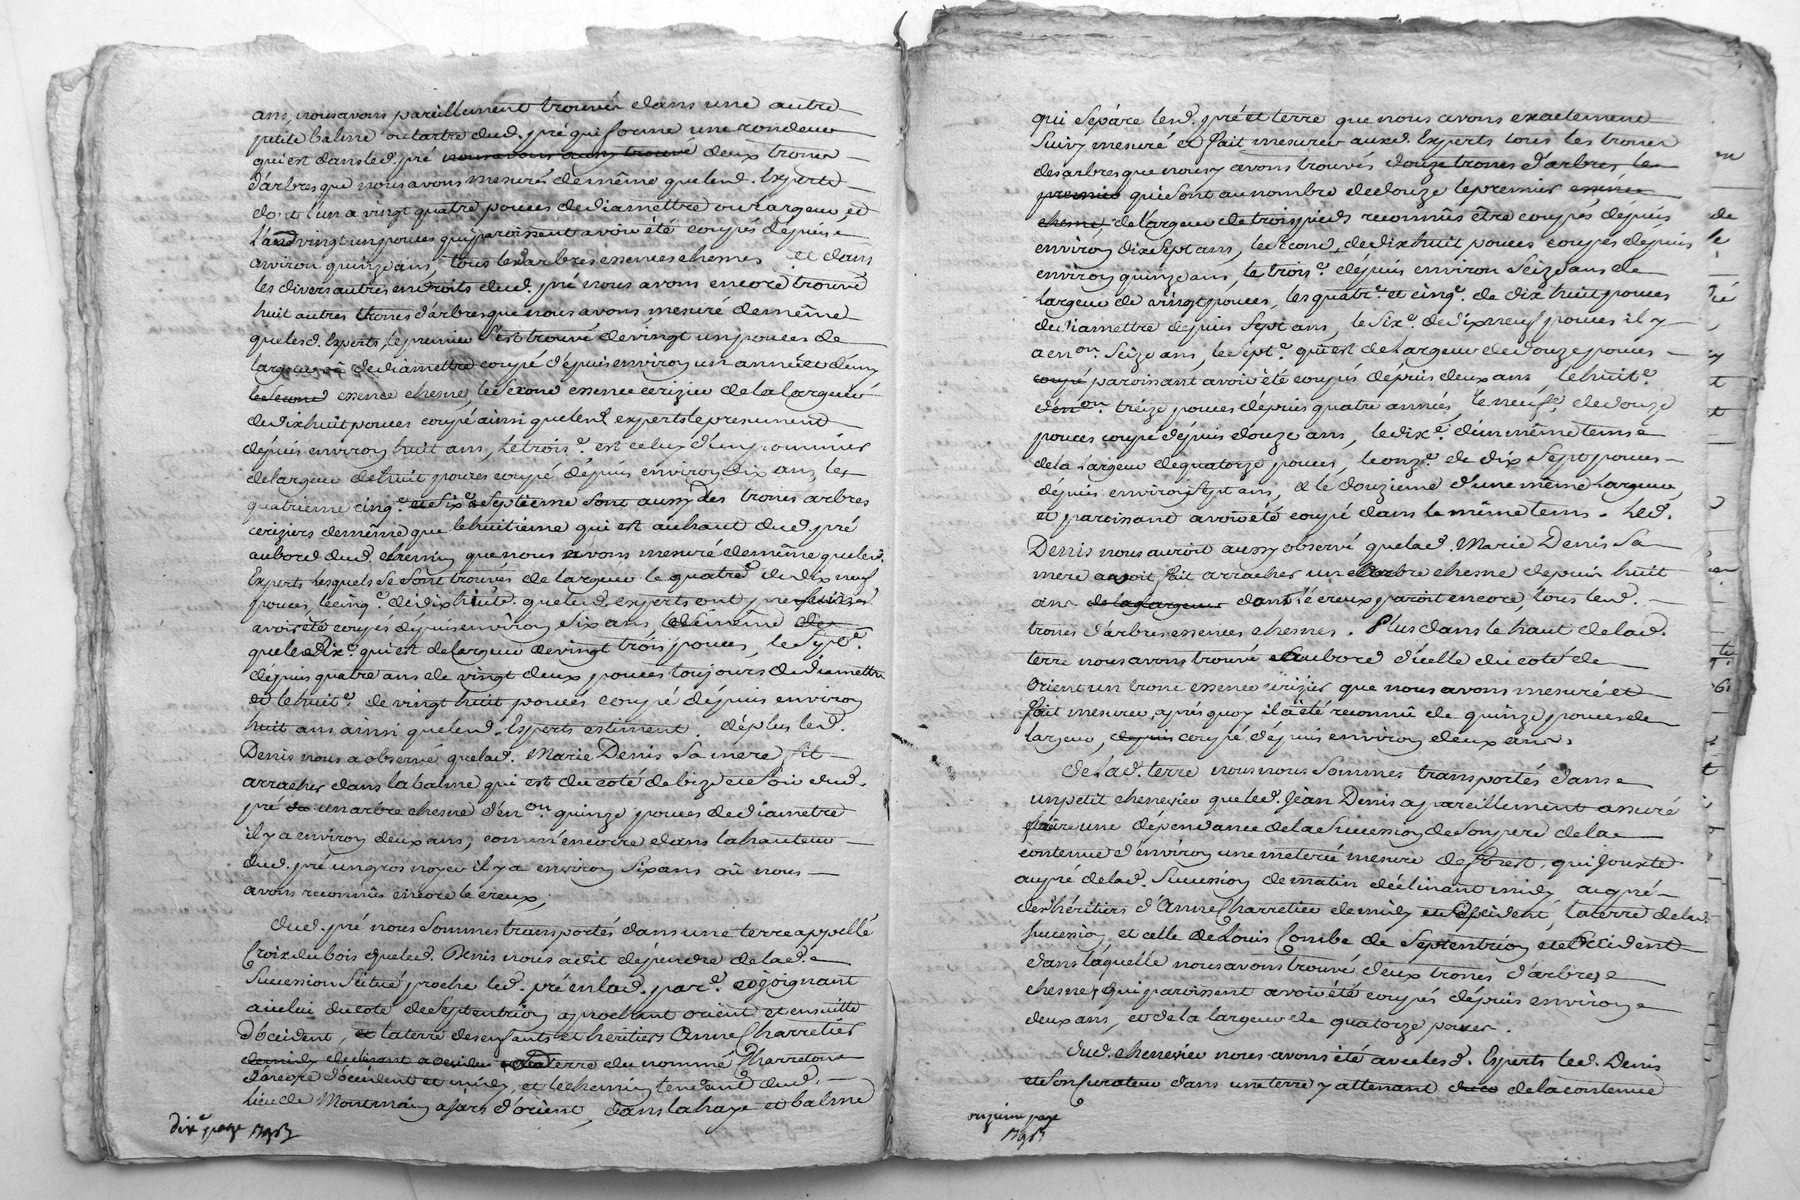 ans, nous avons pareillement trouvés dans une autre
petite balme ou tartre dud. pré qui forme une rondeur
qui est dans led. pré nous avons aussy trouvé deux troncs
d'arbres que nous avons mesurés de même que lesd. Experts
dont l'un a vingt quatre pouces de diamettre ou largeur et
l'autre vingt un pouces qui paroissent avoir été coupés depuis
environ quinze ans, tous lesd. arbres essences chesnes et dans
les divers autres endroits dud. pré nous avons encore trouvé
huit autres troncs d'arbres que nous avons mesuré de même
que lesd. Experts, le premier s'est trouvé de vingt un pouces de
largeur ou de diamettre coupé depuis environ un année et demy
le second essence chesne, le second essence cerizier de la largeur
de dix huit pouces coupé ainsi que lesd. experts le presument
depuis environ huit ans, le trois.e est celuy d'un pommier
de largeur de huit pouces coupé depuis environ dix ans, les
quatrieme cinq.e et six.e & septieme sont aussy des troncs arbres
ceriziers de même que le huitieme qui est au haut dud. pré
au bord dud. chemin que nous avons mesuré de même que lesd.
Experts lesquels se sont trouvés de largeur le quatre.e de dix neuf
pouces, le cinq.e de dix huit que lesd. experts ont
avoir été coupés depuis environ dix ans de même
que le six.e qui est de largeur de vingt trois pouces, le sept.e
depuis quatre ans de vingt deux pouces toujours de diamettre
et le huit.e de vingt huit pouces coupé depuis environ
huit ans ainsi que lesd. Experts estiment. de plus led.
Denis nous a observé que lad. Marie Denis sa mere fit
arracher dans la balme qui est du coté de bize et soir dud.
pré un arbre chesne d'en.on quinze pouces de diametre
il y a environ deux ans, comm'encore dans la hauteur
dud. pré un gros noyer il y a environ six ans où nous
avons reconnus encore le creux,
dud. pré nous sommes transportés dans une terre appellé
Croix du bois que led. Denis nous a dit dépendre de lad.
Succession scitué proche led. pré en lad. par.e cojoignant
a icelui du coté de Septentrion aprochant orient et ensuitte
d'occident, et la terre des enfants et héritiers Anne Charretier
de midy declinant a occident et la terre du nommé Charreton
d'encore d'occident et midy, et le chemin tendant dud.
lieu de Montmain a Jars d'orient, dans la haye et balme
dix.e page
qui sépare lesd. pré et terre que nous avons exactement
suivy mesuré et fait mesurer auxd. Experts tous les troncs
des arbres que nous y avons trouvés douze troncs d'arbres, le
premier qui sont au nombre de douze le premier essence
chesne, de largeur de trois pieds reconnûs être coupés depuis
environ dix sept ans, le second de dix huit pouces coupés depuis
environ quinze ans, le trois.e depuis environ seize ans de
largeur de vingt pouces, les quatr.e et cinq.e de dix huit pouces
de diamettre depuis sept ans, le six.e de dix neuf pouces il y
a en.on seize ans, le sept.e qui est de largeur de douze pouces
coupé paroissant avoir été coupés depuis deux ans, le huit.e
d'en.on treize pouces depuis quatre années, le neuf.e de douze
pouces coupé depuis douze ans, le dix.e d'un même tems
de la largeur de quatorze pouces, le onz.e de dix sept pouces
depuis environ sept ans, & le douzieme d'une même largeur
et paroissant avoir été coupé dans le même tems. led.
Denis nous auroit aussy observé que lad. Marie Denis sa
mere avoit fait arracher un arbre chesne depuis huit
ans de la largeur dont le creux paroit encore, tous lesd.
troncs d'arbres essences chesnes. Plus dans le haut de lad.
terre nous avons trouvé au bord d'icelle du coté de
Orient un tronc essence cerizier que nous avons mesuré et
fait mesurer, après quoy il a été reconnû de quinze pouces de
largeur, depuis coupé depuis environ deux ans.
de lad. terre nous nous sommes transportés dans
un petit chenevier que led. Jean Denis a pareillement assuré
être une dépendance de la Succession de son pere de la
contenue d'environ une meterée mesure de forest, qui jouxte
au pré de lad. Succession de matin déclinant midy au pré
des héritiers d'Anne Charretier de midy et occident, la terre de lad.
succession et celle de Louis Combe de Septentrion et occident
dans laquelle nous avons trouvé deux troncs d'arbres
chesnes qui paroissent avoir été coupés depuis environ
deux ans, et de la largeur de quatorze pouces.
dud. chenevier nous avons été avec lesd. Experts led. Denis
et son Curateur dans une terre y attenant de la contenue
onzieme page